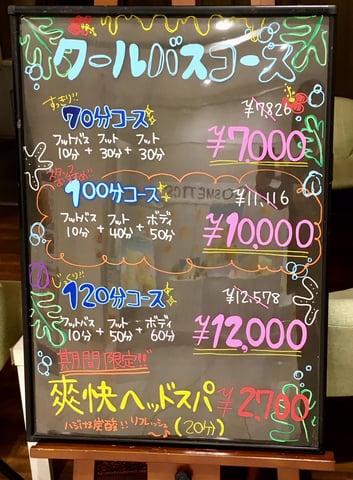 クールバスコース
すっきり!!
70分コース
¥7,826
¥7,000
フットバス フット フット
10分 + 30分 + 30分
スタッフおすすめ!!
100分コース
¥11,116
¥10,000
フットバス フット ボディ
10分 + 40分 + 50分
じっくり!!
120分コース
¥12,578
¥12,000
フットバス フット ボディ
10分 + 50分 + 60分
期間限定!!
爽快ヘッドスパ ¥2,700
ハジける炭酸!! リフレッシュ♪ (20分)